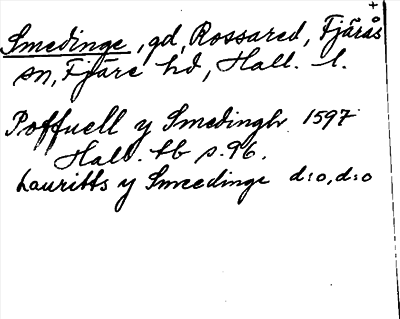 Smedinge, gd, Rossared, Fjärås
sn, Fjäre hd, Hall. l.
Poffuell y Smedinghr 1597
Hall. tb s. 96.
Lauritts y Smeedinge d:o, d:o